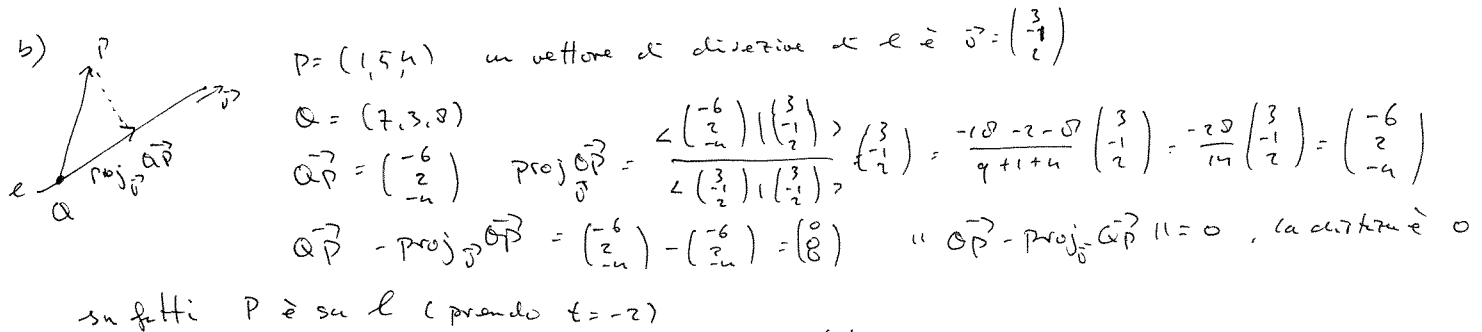 b) P = (1,5,4) un vettore di direzione di l è v⃗ = (3 -1 2)
Q = (7,3,8)
QP⃗ = (-6 2 -4) proj_v⃗ QP⃗ = <(-6 2 -4)|(3 -1 2)> / <(3 -1 2)|(3 -1 2)> (3 -1 2) = (-18-2-8)/(9+1+4) (3 -1 2) = -28/14 (3 -1 2) = (-6 2 -4)
QP⃗ - proj_v⃗ QP⃗ = (-6 2 -4) - (-6 2 -4) = (0 0 0) || QP⃗ - proj_v⃗ QP⃗ || = 0 , la distanza è 0
P
v⃗
proj_v⃗ QP⃗
l
Q
infatti P è su l (prendo t = -2)